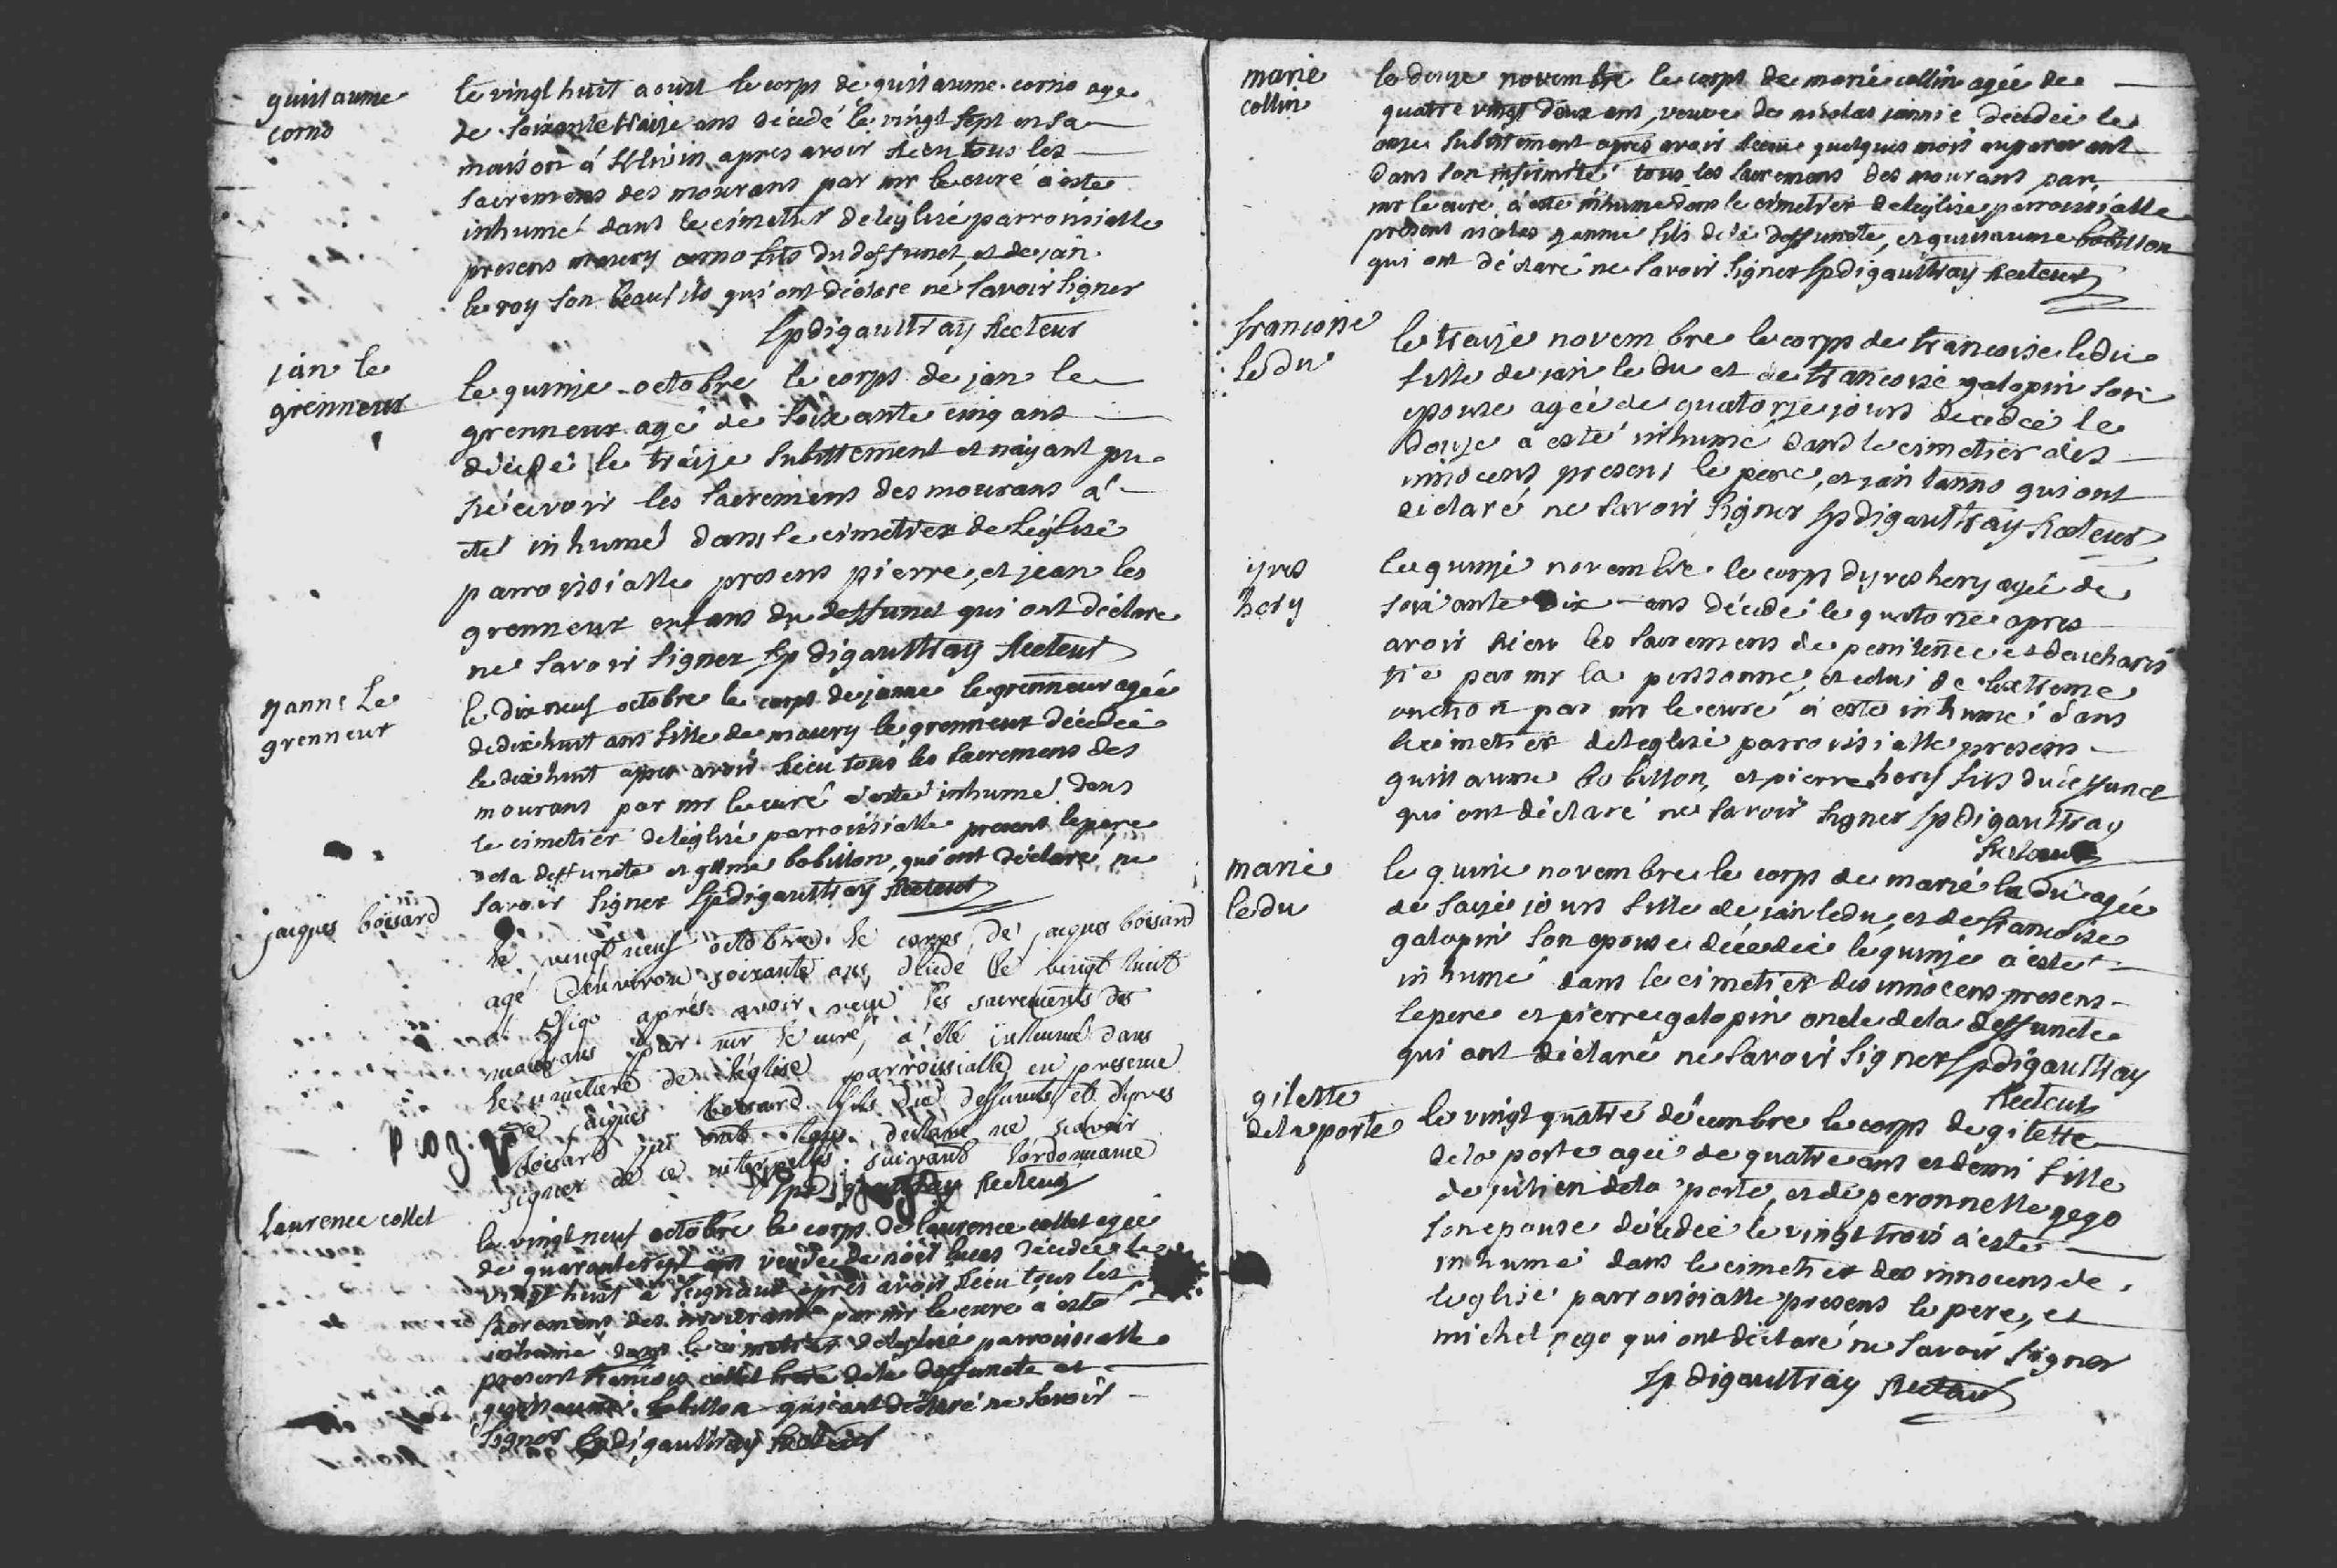 guillaume
corno
le vingt huit aoust le corps de guillaume corno age
de soixante traize ans décedé le vingt sept en sa
maison à apres avoir recu tous les
sacremens des mourans par mr le curé a esté
inhumé dans le cimetier de leglise parroissialle
presens maury corno fils du deffunct, et de jan
le roy son beaufils qui ont déclare ne savoir signer
digaultray Recteur
jan le
grenneur
le quinze octobre le corps de jan le
grenneur agé de soixante cinq ans
décedé le traize subittement et nayant pu
récevoir les sacremens des mourans a
eté inhumé dans le cimetier de léglise
parroissialle presens pierre, et jean les
grenneur enfans du deffunct qui ont déclare
ne savoir signer digaultray Recteur
janne le
grenneur
le dix neuf octobre le corps de janne le grenneur agée
de dix huit ans fille de maury le grenneur décedée
le dix huit apres avoir récu tous les sacremens des
mourans par mr le curé a esté inhumé dans
le cimetier de léglise parroissialle present le pere
de la deffuncte et gllme bobillon, qui ont déclaré ne
savoir signer digaultray Recteur
jacques boisard
le vingt neuf octobre le corps de jacques boisard
agé denviron soixante ans, décedé le vingt huit
a aprés avoir reçu les sacrements des
mourans par mr le curé, a été inhumé dans
le cimetiere de l'église parroissialle en presence
de jacques boisard fils du deffunct et dyves
boisard qui ont declaré ne scavoir
signer de ce interpellés suivant lordonnance
digaultray Recteur
laurence collet
le vingt neuf octobre le corps de laurence collet agée
de quarante sept ans veuve de noël lucas décedée le
vingt huit a apres avoir récu tous les
sacremens des mourans par mr le curé a esté
inhumé dans le cimetier de léglise parroissialle
present francois collet frere de la deffuncte et
guillaume bobillon qui ont déclaré ne savoir
signer digaultray Recteur
marie
collin
le douze novembre le corps de marie collin agée de
quatre vingt deux ans, veuve de nicolas jannie décedée le
onze subittement apres avoir receue quelques mois auparavant
dans son infirmité tous les sacremens des mourans par
mr le curé, a esté inhumé dans le cimetier de leglise parroissialle
présens nicolas jannie fils de la deffuncte, et guillaume bobillon
qui ont déclaré ne savoir signer digaultray Recteur
francoise
le du
le traize novembre le corps de francoise le du
fille de jan le du et de francoise galopin son
epouse agée de quatorze jours decedée le
douze a esté inhumé dans le cimetier des
innocens, presens le pere, et jan tanno qui ont
declaré ne savoir signer digaultray Recteur
yves
hery
le quinze novembre le corps dyves hery agé de
soixante dix ans décedé le quatorze apres
avoir récu les sacremens de penitence et deucharis
tie par mr la personne, et celui de lextreme
onction par mr le curé a esté inhumé dans
le cimetier de leglise parroissialle presens
guillaume bobillon, et pierre hery fils du deffunct
qui ont déclaré ne savoir signer digaultray
Recteur
marie
le du
le quinze novembre le corps de marie le du agée
de saize jours fille de jan le du, et de francoise
galopin son epouse décedée le quinze a esté
inhumé dans le cimetier des innocens presens
le pere et pierre galopin oncle de la deffuncte
qui ont déclaré ne savoir signer digaultray
Recteur
gilette
de la porte
le vingt quatre décembre le corps de gilette
de la porte agée de quatre ans et demi fille
de julien de la porte, et de peronnelle gego
son epouse décedée le vingt trois a esté
inhumé dans le cimetier des innocens de
leglise parroissialle presens le pere, et
michel gego qui ont déclaré ne savoir signer
digaultray Recteur